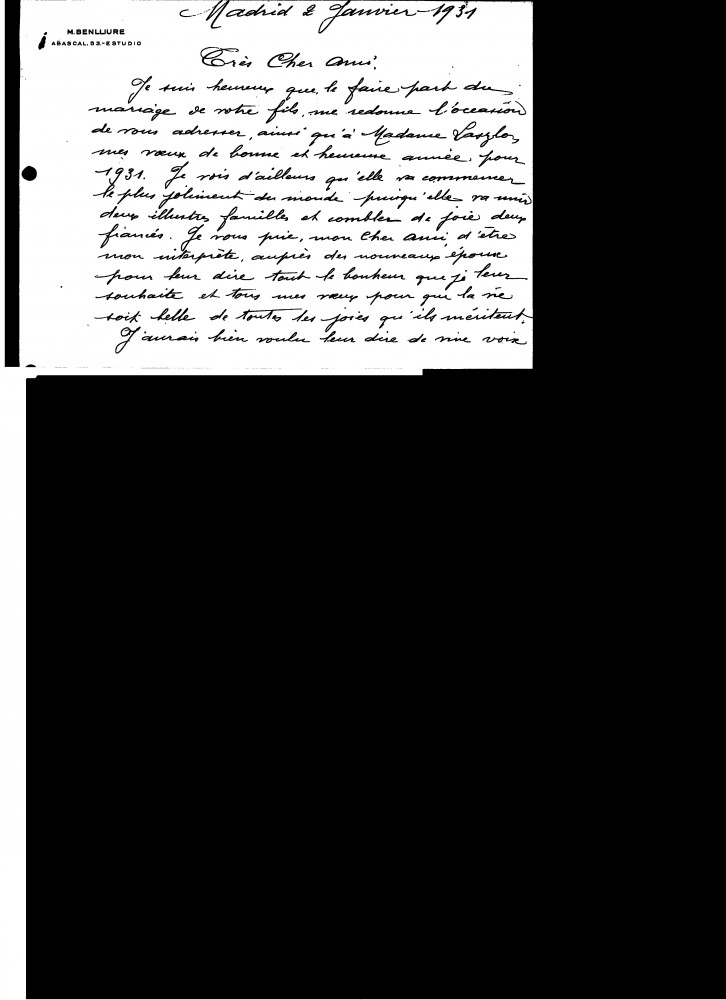 Madrid 2 Janvier 1931
M. BENLLIURE
ABASCAL, 53.-ESTUDIO
Très Cher Ami.
Je suis heureux que le faire part du
mariage de votre fils, me redonne l'occasion
de vous adresser, ainsi qu'à Madame Laszlo,
mes vœux de bonne et heureuse année, pour
1931. Je vois d'ailleurs qu'elle va commencer
le plus joliment du monde puisqu'elle va unir
deux illustres familles et combler de joie deux
fiancés. Je vous prie, mon Cher Ami, d'être
mon interprète, auprès des nouveaux époux
pour leur dire tout le bonheur que je leur
souhaite et tous mes vœux pour que la vie
soit belle de toutes les joies qu'ils méritent.
J'aurais bien voulu leur dire de vive voix